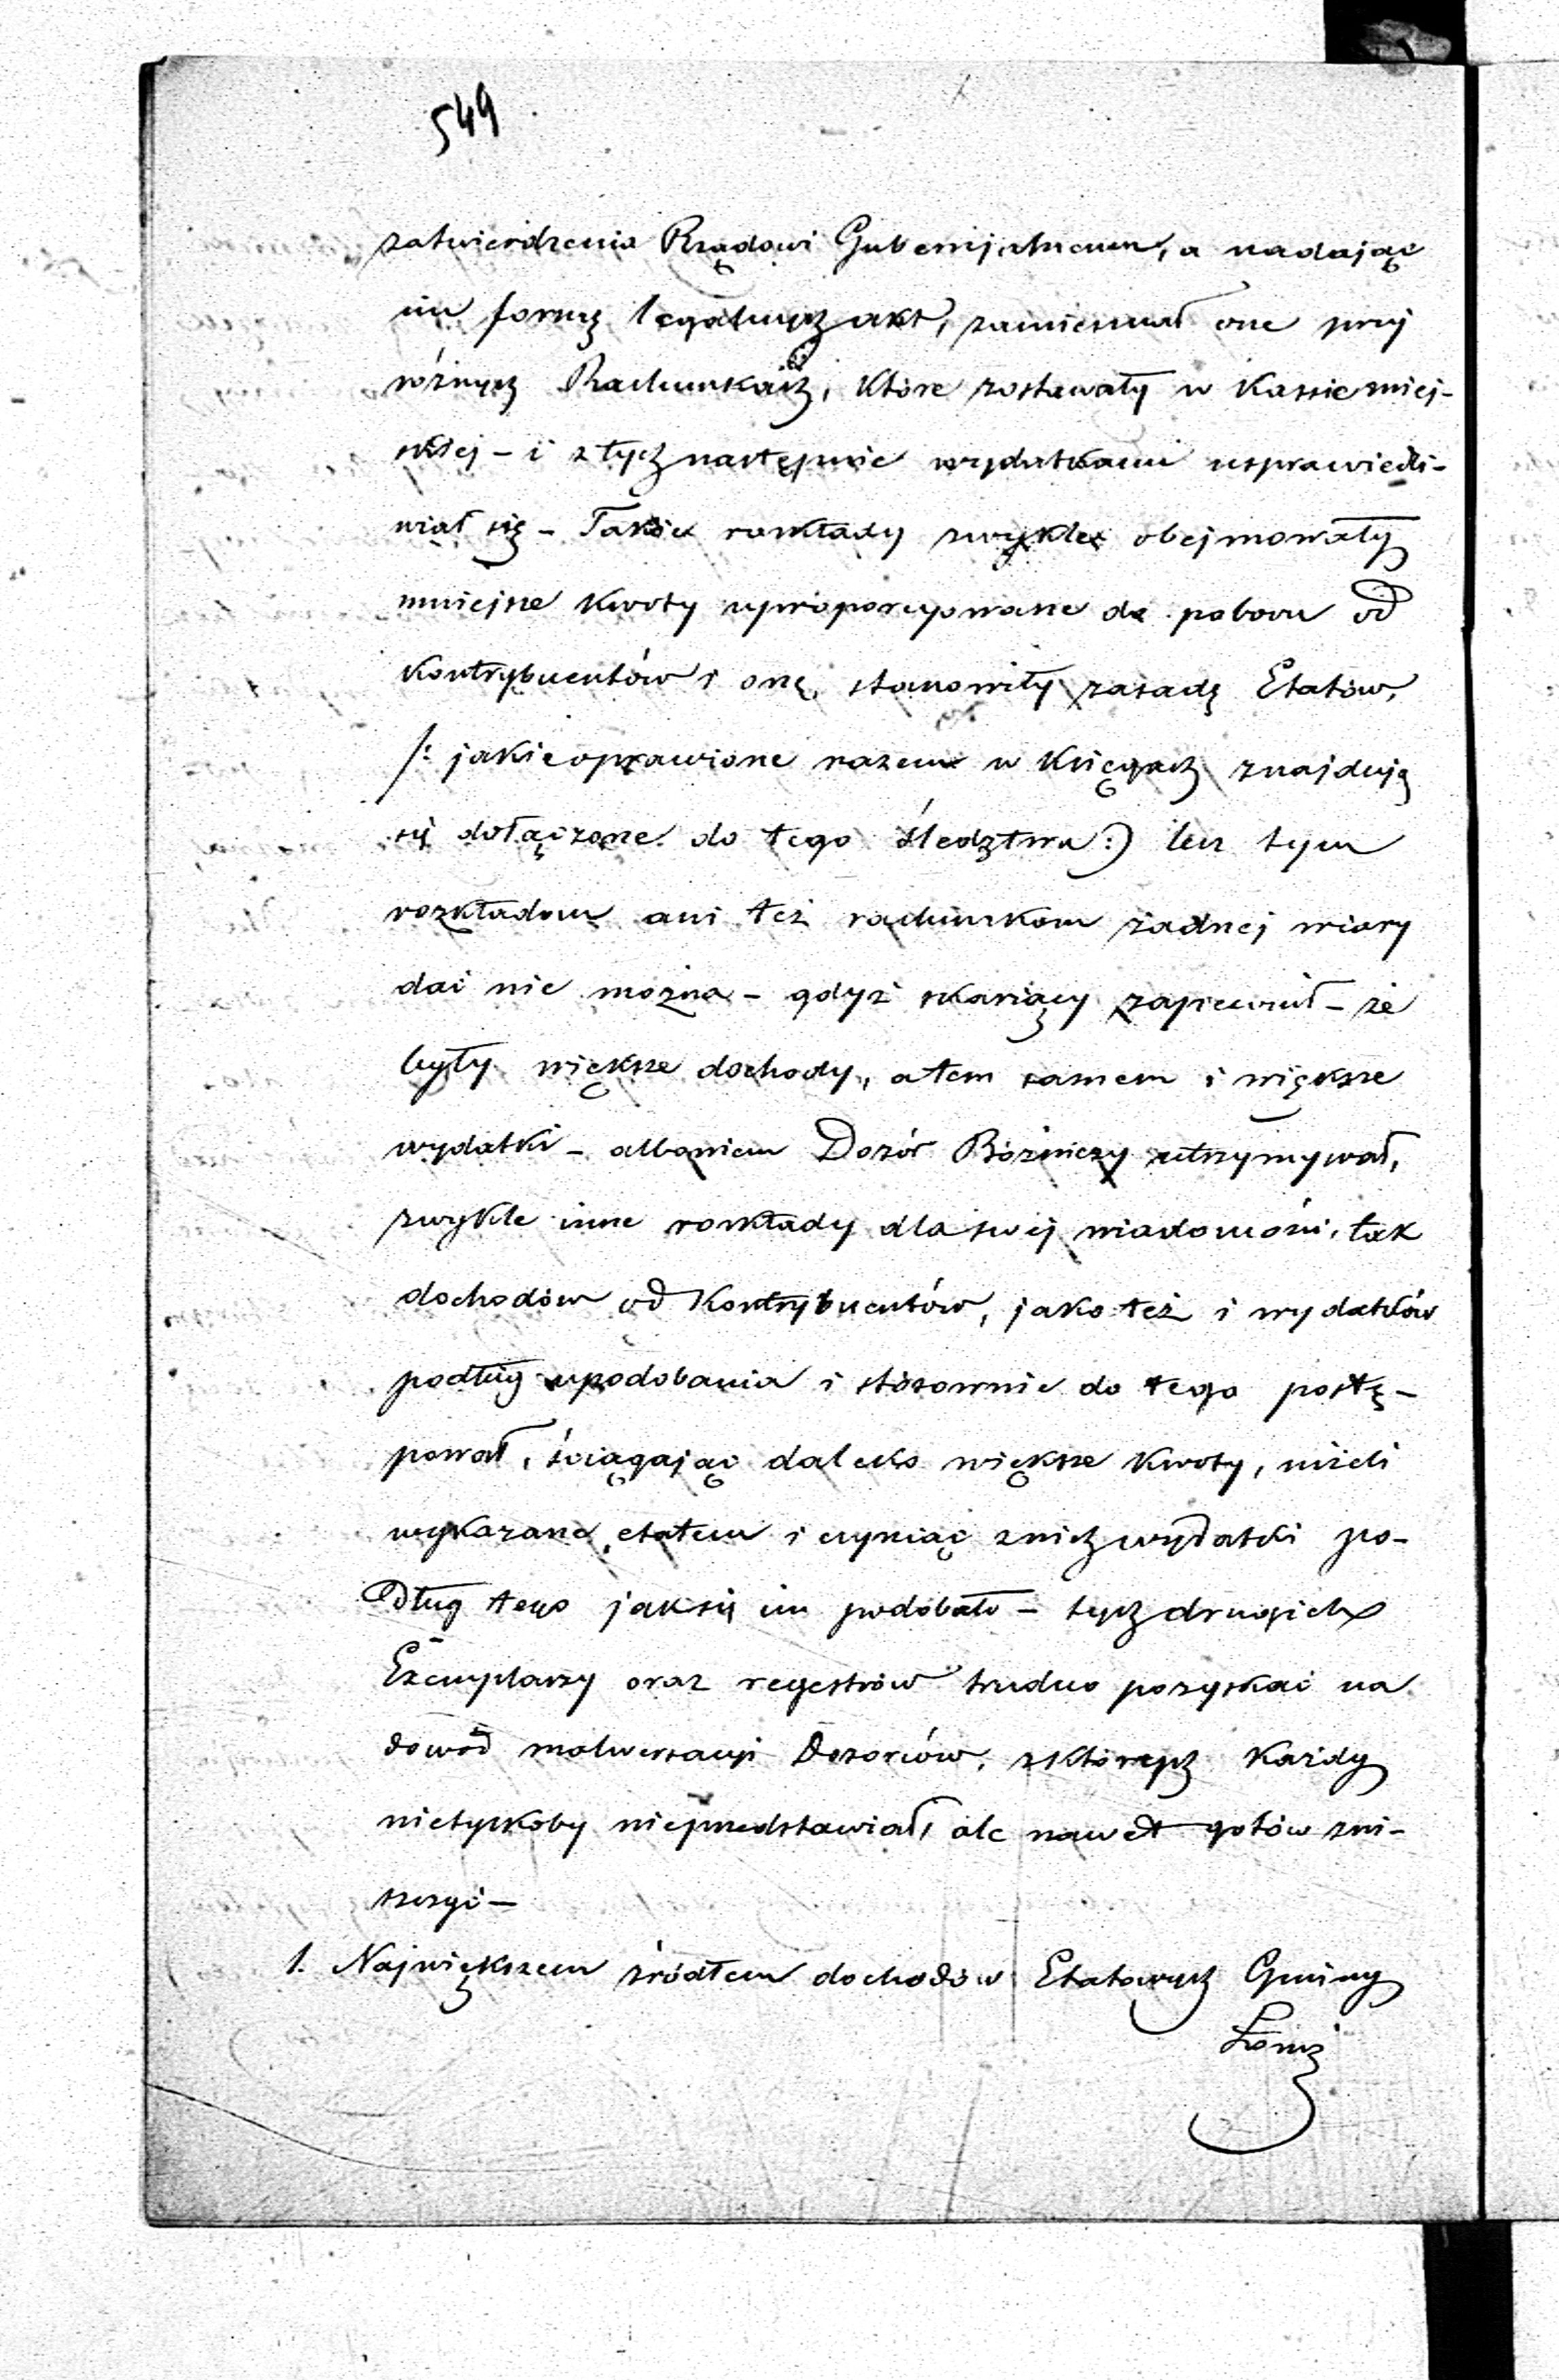 549
zatwierdzenia Rządowi Gubernijalnemu, a nadając
im formę legalnych akt, zamieszczał one przy
różnych Rachunkach, które zostawały w Kassie miej-
skiej – i z tych następnie wydatkami usprawiedli-
wiał się – Takie rozkłady zwykle obejmowały
mniejsze kwoty uproporcyonowane do poboru od
Kontrybuentów i one stanowiły zasadę Etatów,
/: jakie oprawione razem w Księgach znajdują
się dołączone do tego śledztwa :) lecz tym
rozkładom ani też rachunkom żadnej wiary
dać nie można – gdyż skarżący zapewnił – że
były większe dochody, a tem samem i większe
wydatki – albowiem Dozór Bóżniczy utrzymywał,
zwykle inne rozkłady dla swej wiadomości, tak
dochodów od Kontrybuentów, jako też i wydatków
podług upodobania i stósownie do tego postę-
pował, ściągając daleko większe kwoty, niżeli
wykazane etatem i czyniąc z nich wydatki po-
dług tego jak się im podobało – tych drugich
Exemplarzy oraz regestrów trudno pozyskać na
dowód malwersacyi Dozorców, z których każdy
nietylkoby nieprzedstawiał, ale nawet gotów zni-
szczyć –
1. Największem źródłem dochodów Etatowych Gminy